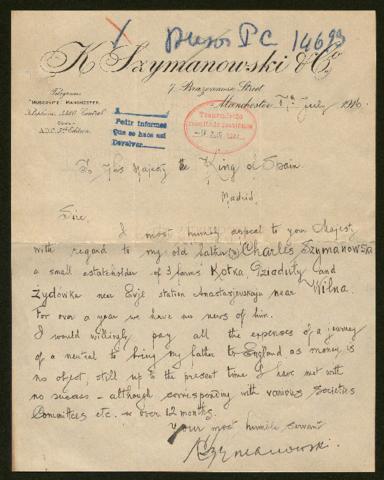 K Szymanowski & Co
7. Brazennose Street
Telegrams
Telephone
Codes
A.B.C. 5th Edition
Manchester 7th July 1916
Pedir informes
que se hace así
Devolver
Tramitado
To His Majesty the King of Spain
Madrid.
Sire,
I most humbly appeal to your Majesty
with regard to my old father Charles Szymanowski
a small estateholder of 3 farms Kotka, Dziaduly and
Żydówka near Evje station Anastasjewskaja near Wilna.
For over a year we have no news of him.
I would willingly pay all the expenses of a journey
of a neutral to bring my father to England as money is
no object, still up to the present time I have met with
no success - although corresponding with various Societies
Committees etc. for over 12 months.
Your most humble servant
KSzymanowski.